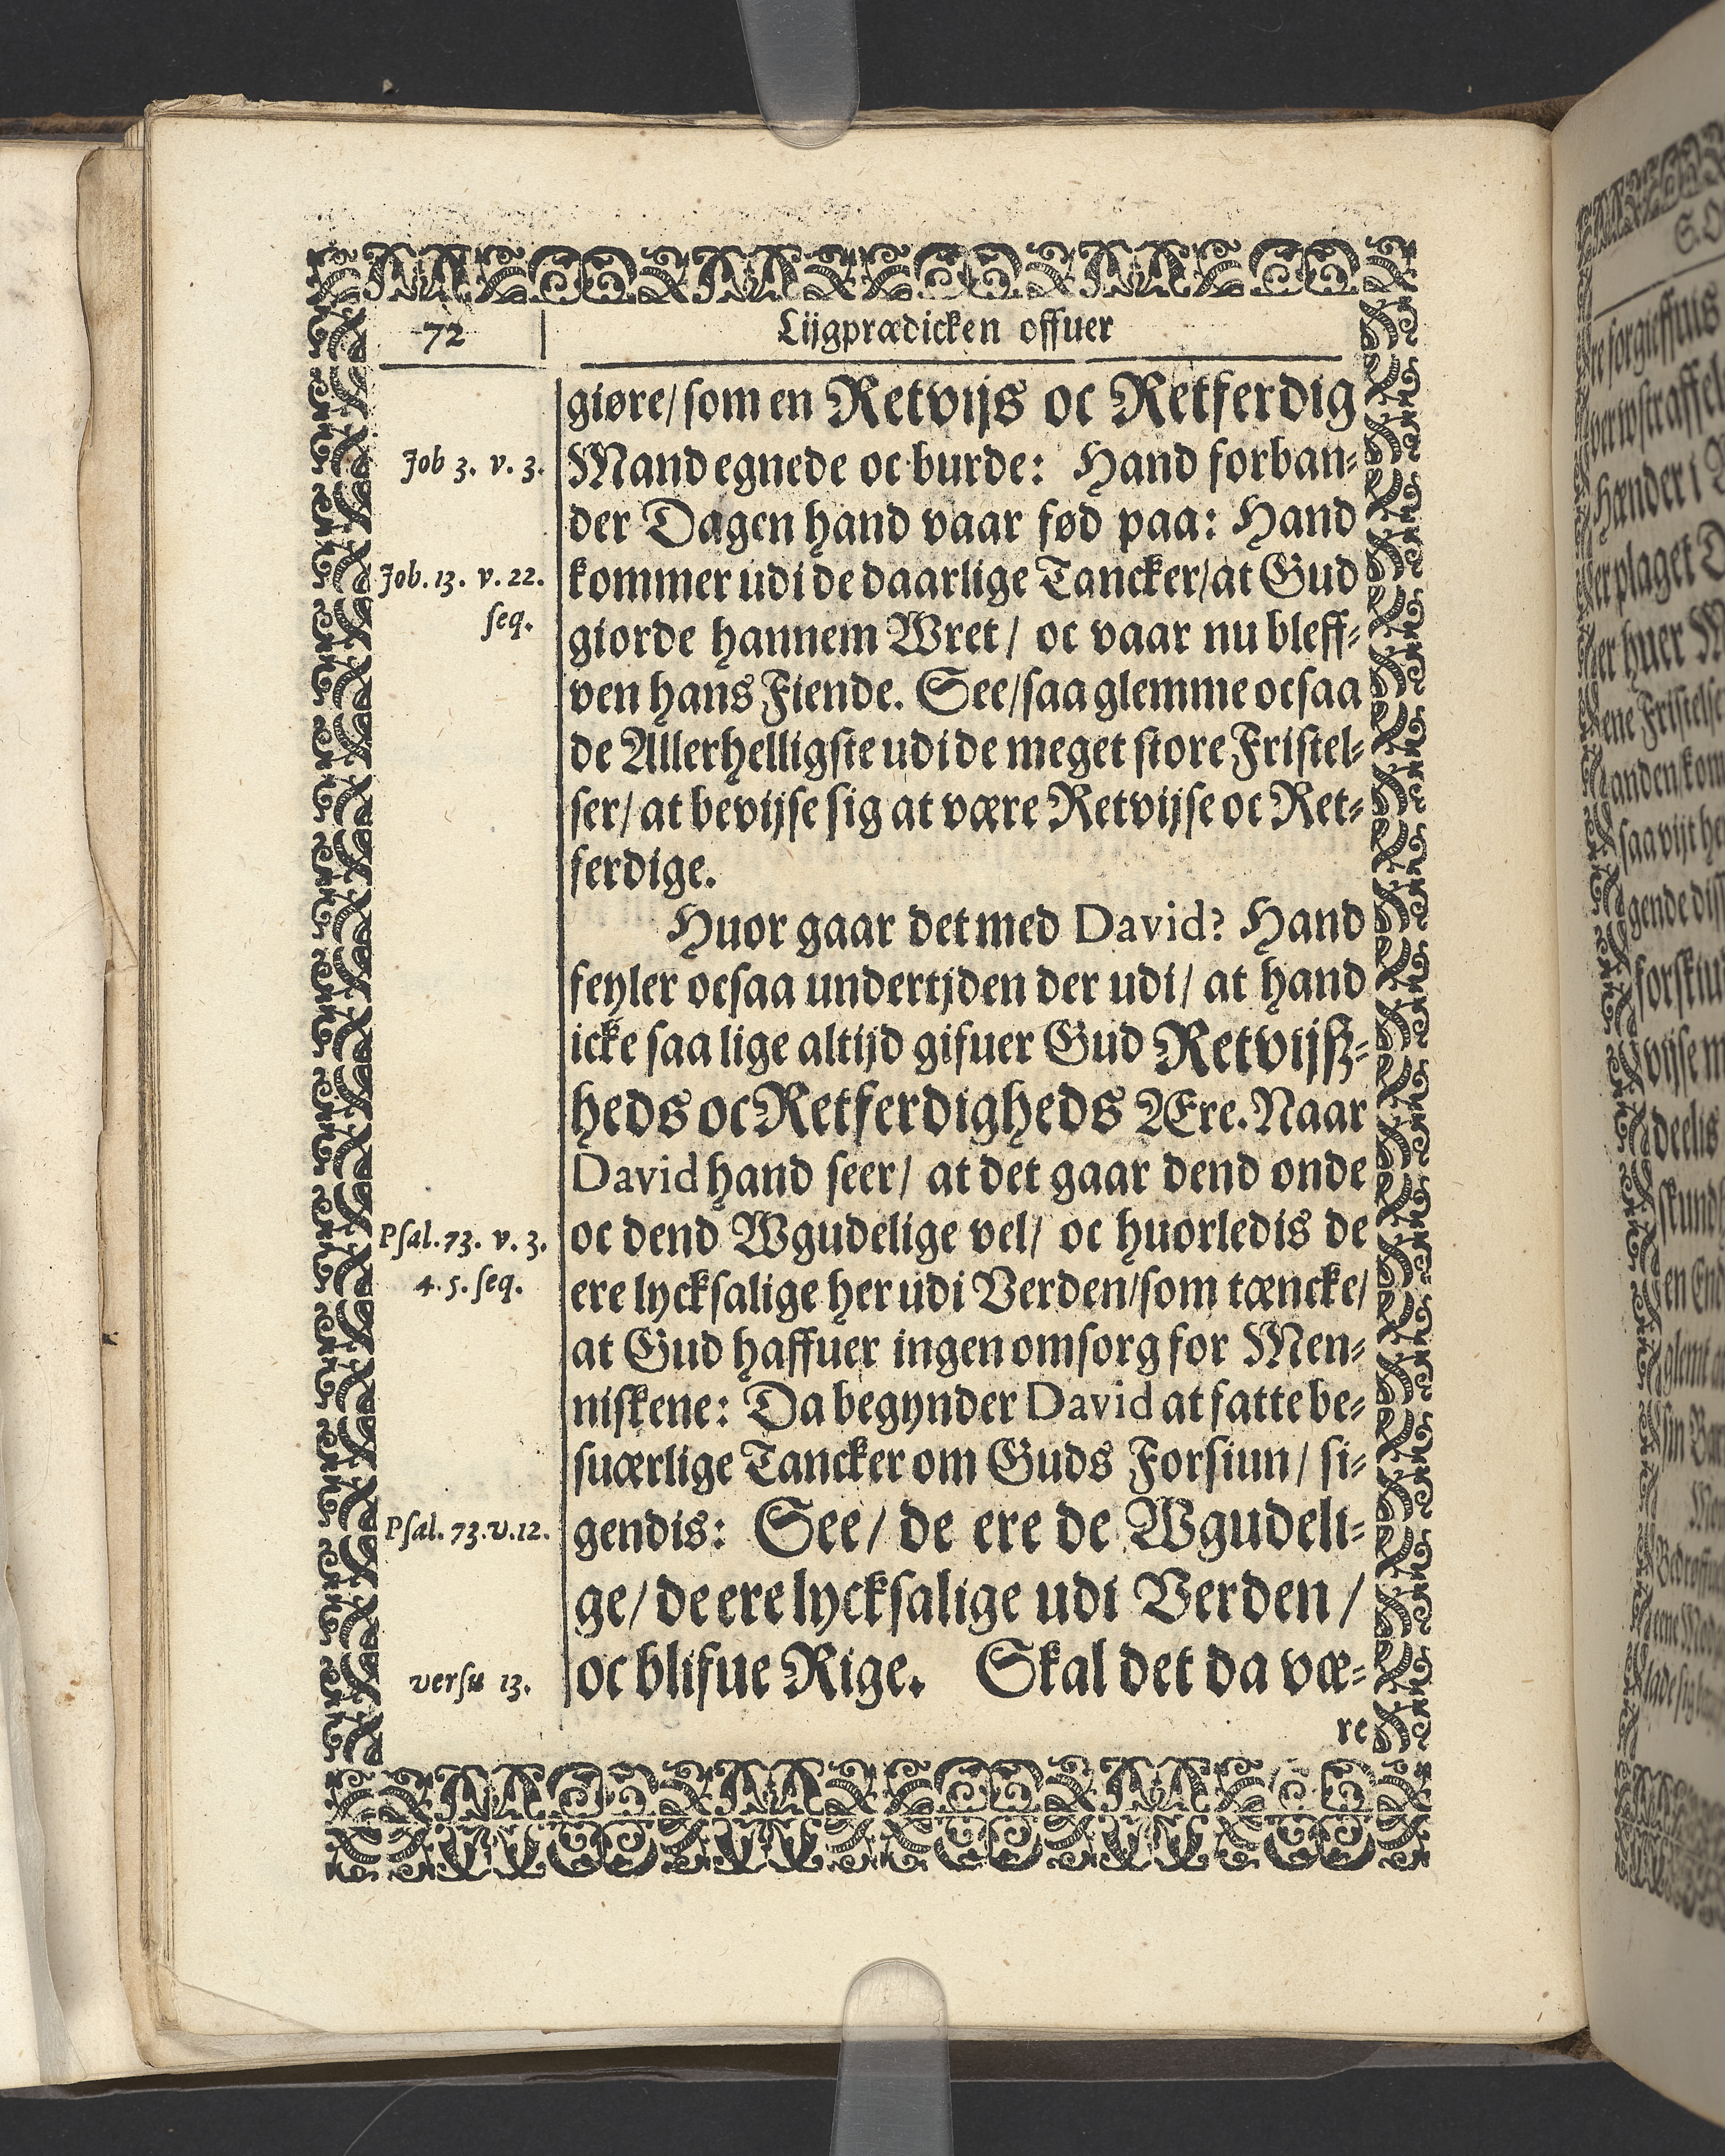 72
Lijgprædicken offuer
giøre/ som en Retvijs oc Retferdig
Job 3. v. 3.
Mand egnede oc burde: Hand forban-
der Dagen hand vaar fød paa: Hand
Job. 13. v. 22.
seq.
kommer udi de daarlige Tancker/ at Gud
giorde hannem Wret/ oc vaar nu bleff-
ven hans Fiende. See/ saa glemme ocsaa
de Allerhelligste udi de meget store Fristel-
ser/ at bevijse sig at være Retvijse oc Ret-
ferdige.
Huor gaar det med David? Hand
feyler ocsaa undertjden der udi/ at hand
icke saa lige altijd gifuer Gud Retvijsz-
heds oc Retferdigheds Ære. Naar
David hand seer/ at det gaar dend onde
Psal. 73. v. 3.
4. 5. seq.
oc dend Wgudelige vel/ oc huorledis de
ere lycksalige her udi Verden/ som tæncke/
at Gud haffuer ingen omsorg for Men-
niskene: Da begynder David at fatte be-
suærlige Tancker om Guds Forsiun/ si-
Psal. 73. v. 12.
gendis: See/ de ere de Wgudeli-
ge/ de ere lycksalige udi Verden/
versu 13.
oc blifue Rige. Skal det da væ-
re